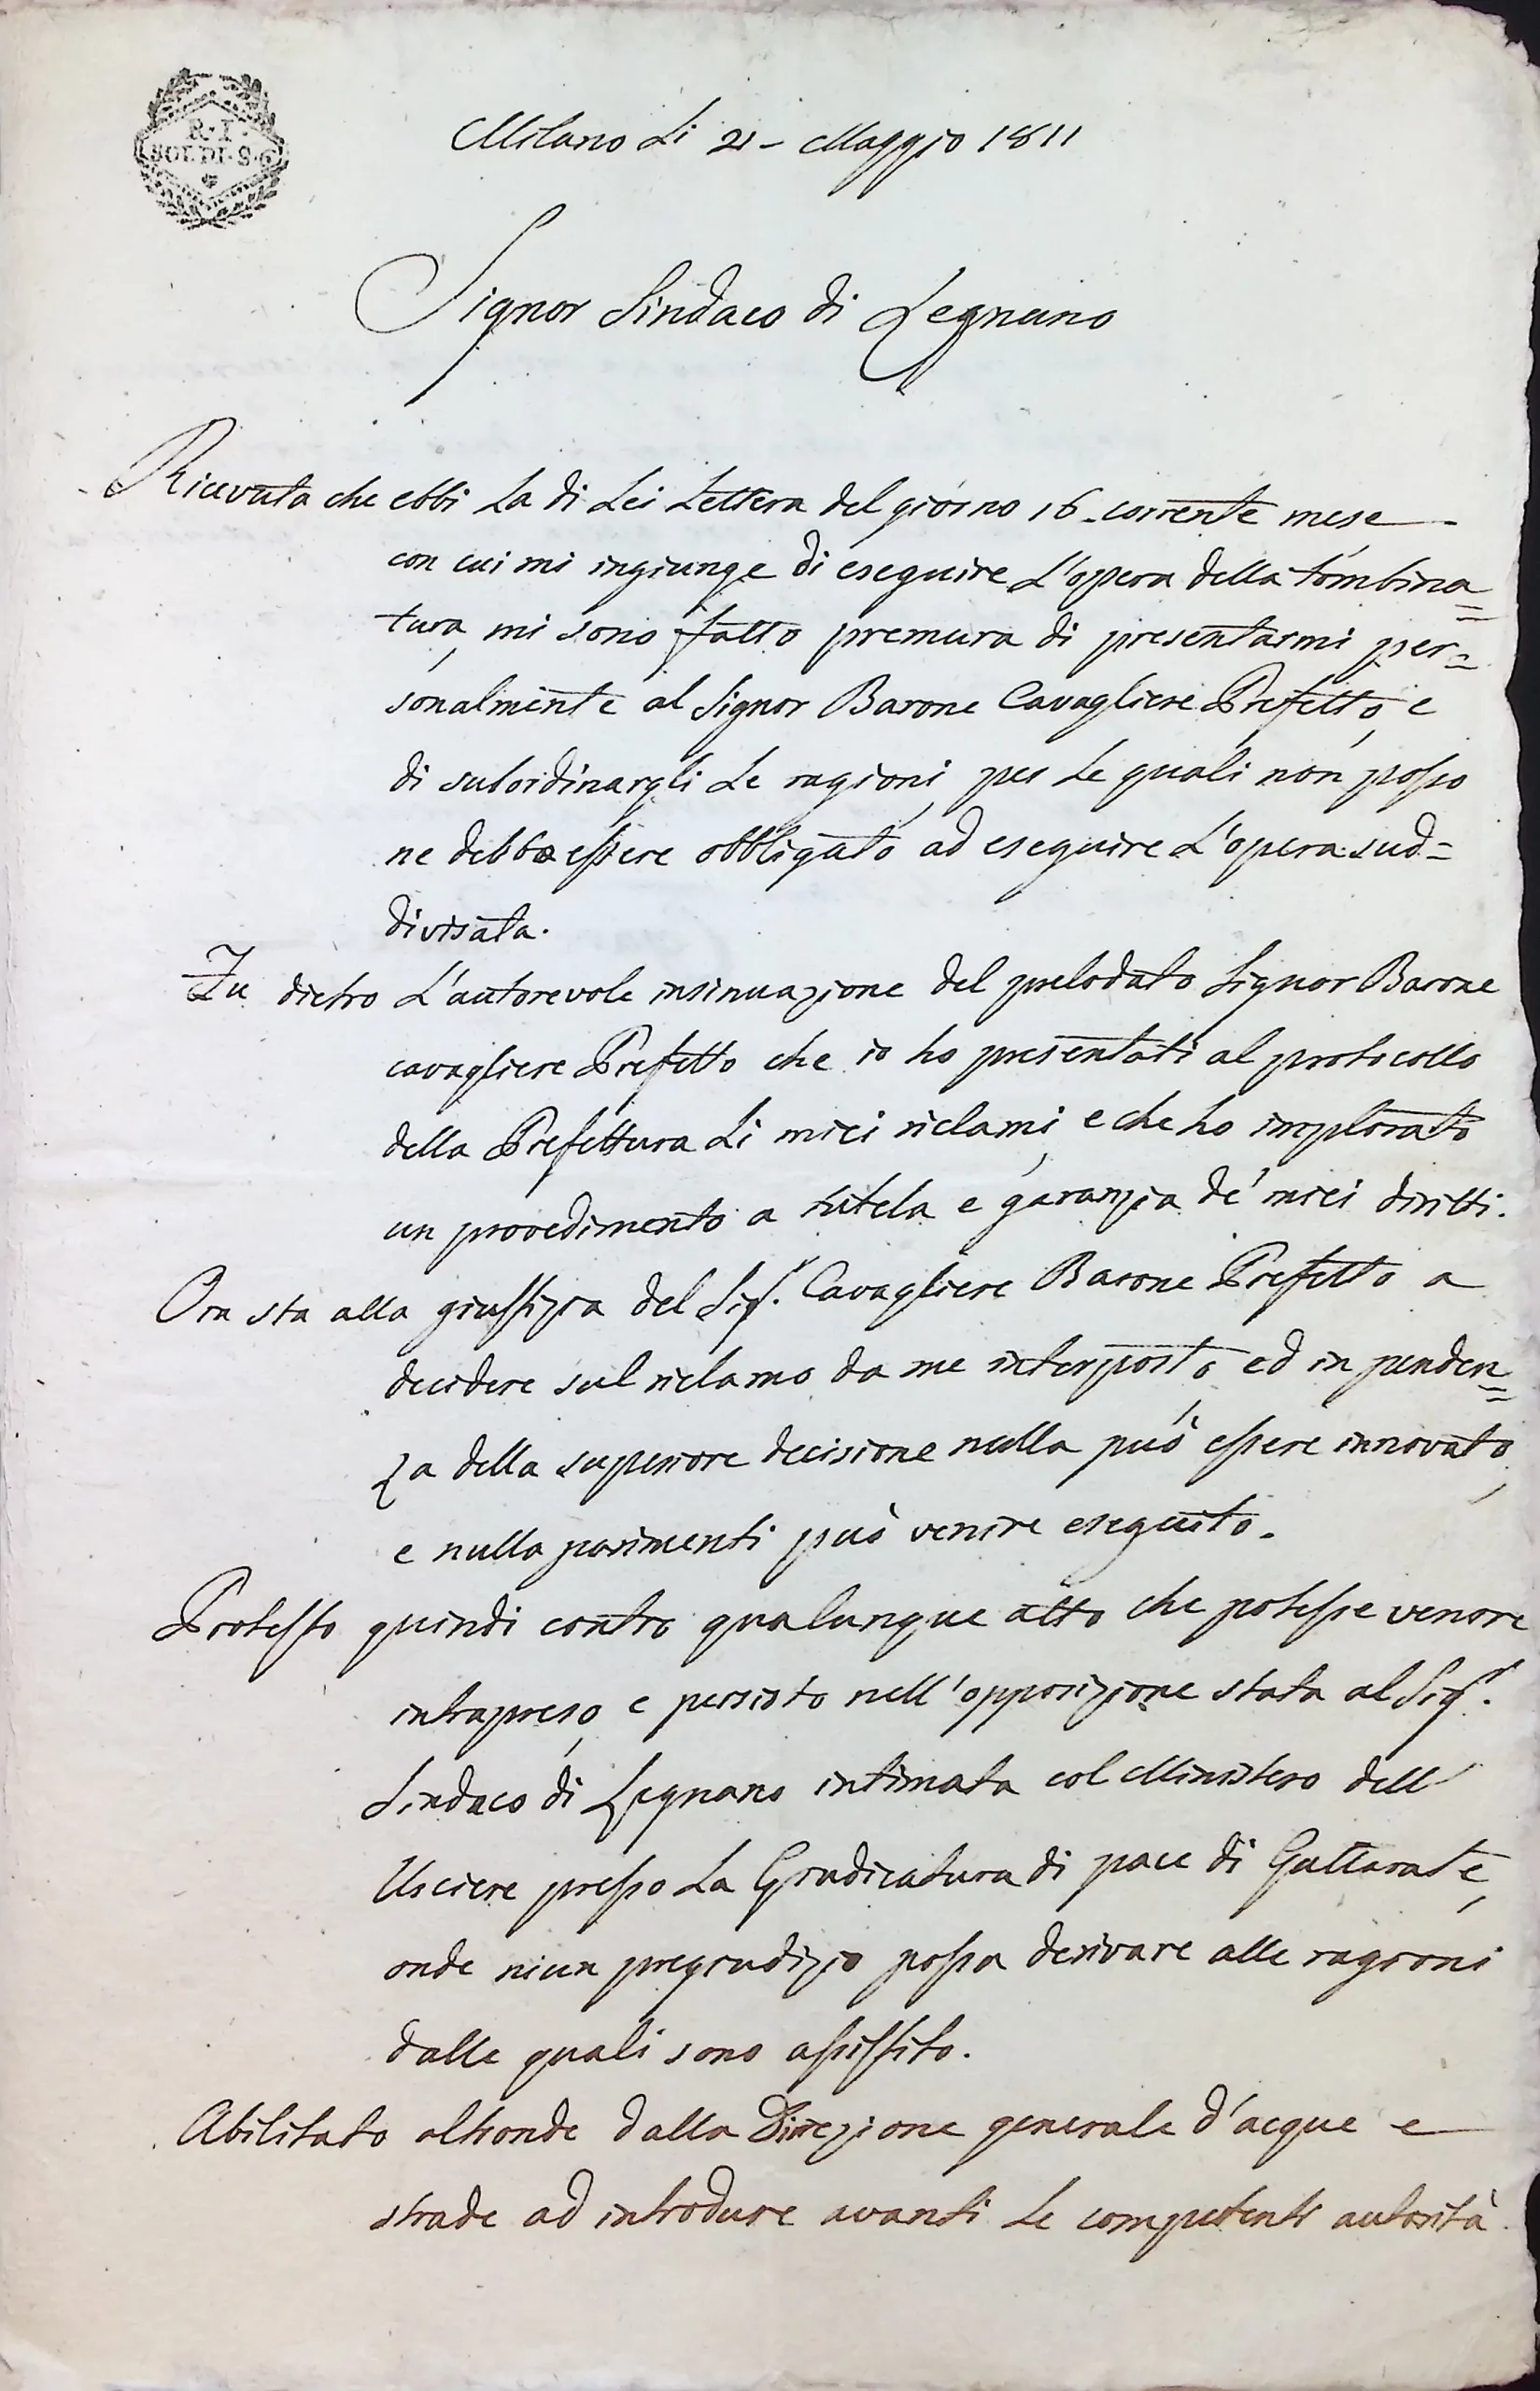 R. I.
SOLDI. 9. 6
Milano Li 21 - Maggio 1811
Signor Sindaco di Legnano
Ricevuta che ebbi La di Lei Lettera del giorno 16. corrente mese
con cui mi ingiunge di eseguire L'opera della tombina=
tura, mi sono fatto premura di presentarmi per=
sonalmente al Signor Barone Cavagliere Prefetto, e
di subordinargli Le ragioni, per Le quali non posso
ne debbo essere obbligato ad eseguire L'opera sud=
divisata.
Fu dietro L'autorevole insinuazione del prelodato Signor Barone
cavagliere Prefetto che io ho presentati al protocollo
della Prefettura Li miei riclami, e che ho implorato
un provedimento a tutela e garanzia de' miei diritti.
Ora sta alla giustizia del Sigr. Cavagliere Barone Prefetto a
decidere sul riclamo da me interposto, ed in penden=
za della superiore decisione nulla può essere innovato,
e nulla parimenti può venire eseguito.
Protesto quindi contro qualunque atto che potesse venire
intrapreso, e persisto nell'opposizione stata al Sigr.
Sindaco di Legnano intimata col Ministero dell'
Usciere presso La Giudicatura di pace di Gallarate,
onde niun pregiudizio possa derivare alle ragioni
dalle quali sono assistito.
Abilitato altronde dalla Direzione generale d'acque e
strade ad introdure avanti Le competenti autorità